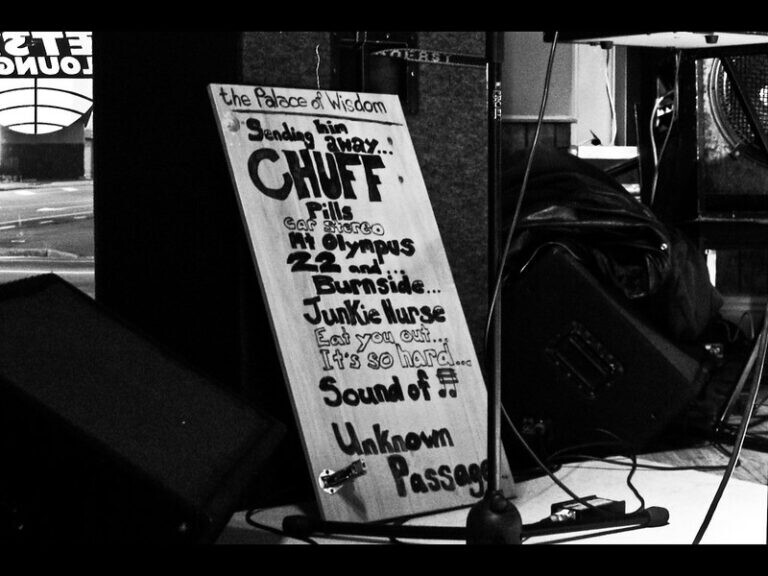 the Palace of Wisdom
Sending him
away...
CHUFF
Pills
Car Stereo
Mt Olympus
22 and...
Burnside...
Junkie Nurse
Eat you out...
It's so hard...
Sound of
Unknown
Passage
ETS
LOUNG